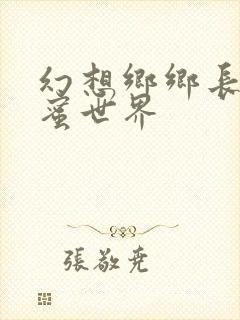 幻想鄉鄉長
蜜世界
張敬堯